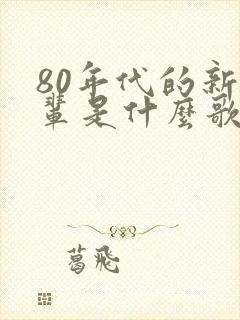 80年代的新
辈是什麼歌
葛飛